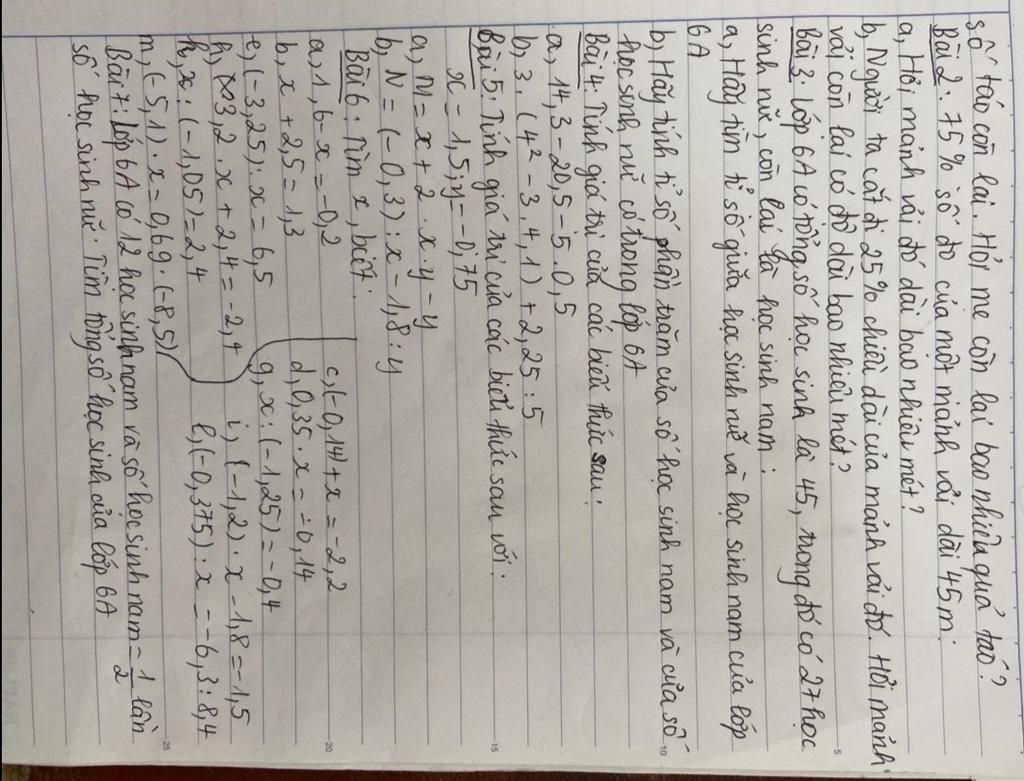 số táo còn lại. Hỏi mẹ còn lại bao nhiêu quả táo?
Bài 2: 75% số đo của một mảnh vải dài 45m:
a, Hỏi mảnh vải đó dài bao nhiêu mét?
b, Người ta cắt đi 25% chiều dài của mảnh vải đó. Hỏi mảnh
vải còn lại có độ dài bao nhiêu mét?
Bài 3: lớp 6A có tổng số học sinh là 45, trong đó có 27 học
sinh nữ, còn lại là học sinh nam:
a, Hãy tìm tỉ số giữa học sinh nữ và học sinh nam của lớp
6A
b, Hãy tính tỉ số phần trăm của số học sinh nam và của số
học sinh nữ có trong lớp 6A
Bài 4: Tính giá trị của các biểu thức sau:
a, 14,3 - 20,5 - 5.0,5
b, 3. (4² - 3.4,1) + 2,25 : 5
Bài 5: Tính giá trị của các biểu thức sau với:
x = 1,5; y = -0,75
a, M = x + 2 . x . y - y
b, N = (-0,3) : x - 1,8 : y
Bài 6: Tìm x, biết:
a, 1,6 - x = -0,2
b, x + 2,5 = 1,3
c, (-0,14) + x = -2,2
d, 0,35 . x = -0,14
e, (-3,25) : x = 6,5
g, x : (-1,25) = -0,4
h, 3,2 . x + 2,4 = -2,4
i, (-1,2) . x - 1,8 = -1,5
k, x : (-1,05) = 2,4
l, (-0,375) : x = -6,3 : 8,4
m, (-5,1) . x = 0,69 . (-8,5)
Bài 7: lớp 6A có 12 học sinh nam và số học sinh nam = 1/2 lần
số học sinh nữ. Tìm tổng số học sinh của lớp 6A
5
10
15
20
25